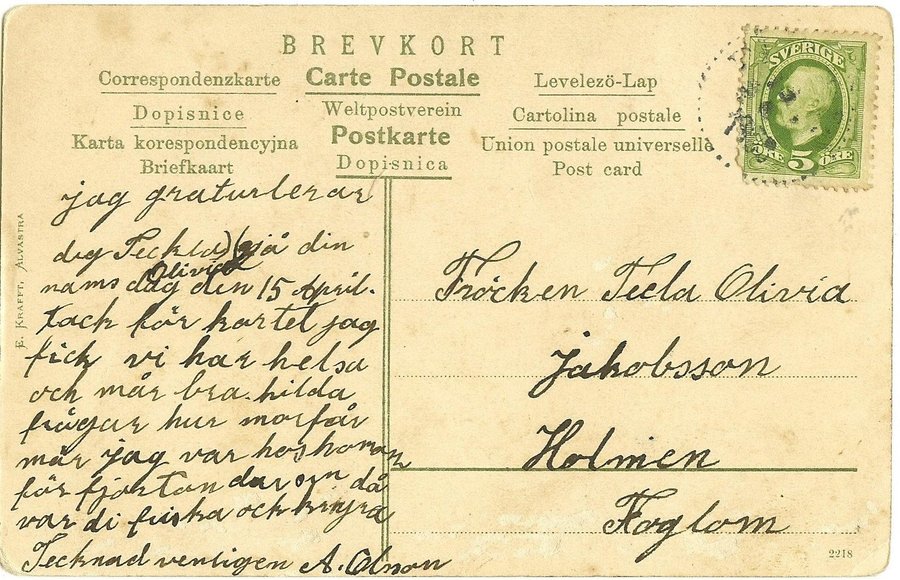 BREVKORT
Correspondenzkarte
Carte Postale
Levelezö-Lap
Dopisnice
Weltpostverein
Cartolina postale
Karta korespondencyjna
Postkarte
Union postale universelle
Briefkaart
Dopisnica
Post card
SVERIGE
5
ÖRE ÖRE
jag graturlerar
dig Teckla på din
Olivia
nams dag den 15 April.
tack för kortet jag
fick vi har helsa
och mår bra. hilda
frågar hur morfar
mår jag var hos honom
för fjorton dar sen då
var di friska och
Tecknad venligen A. Olsson
E. KRAFFT, ALVASTRA
Fröcken Tecla Olivia
Jakobsson
Holmen
Foglom
2218